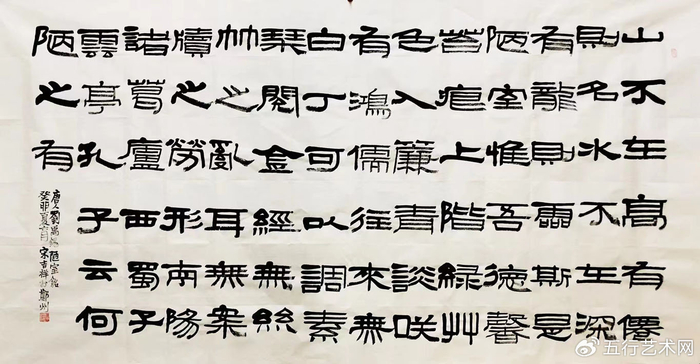 山不在高有僊
則名水不在深
有龍則靈斯是
陋室惟吾德馨
苔痕上階緑艸
色入簾青談咲
有鴻儒往來無
白丁可以調素
琴閱金經無絲
竹之亂耳無案
牘之勞形南陽
諸葛廬西蜀子
雲亭孔子云何
陋之有
唐人劉禹錫陋室銘
癸卯夏六月宋吉祥於鄭州
五行艺术网